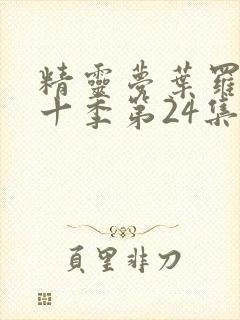 精靈夢葉羅
十季第24集
頁里非刀